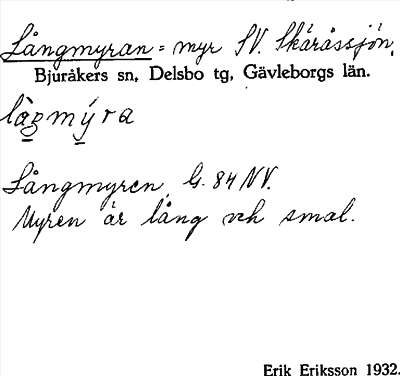 Långmyran = myr SV. Skåråssjön,
Bjuråkers sn, Delsbo tg, Gävleborgs län.
Långmyren, G. 84 NV.
Myren är lång och smal.
Erik Eriksson 1932.